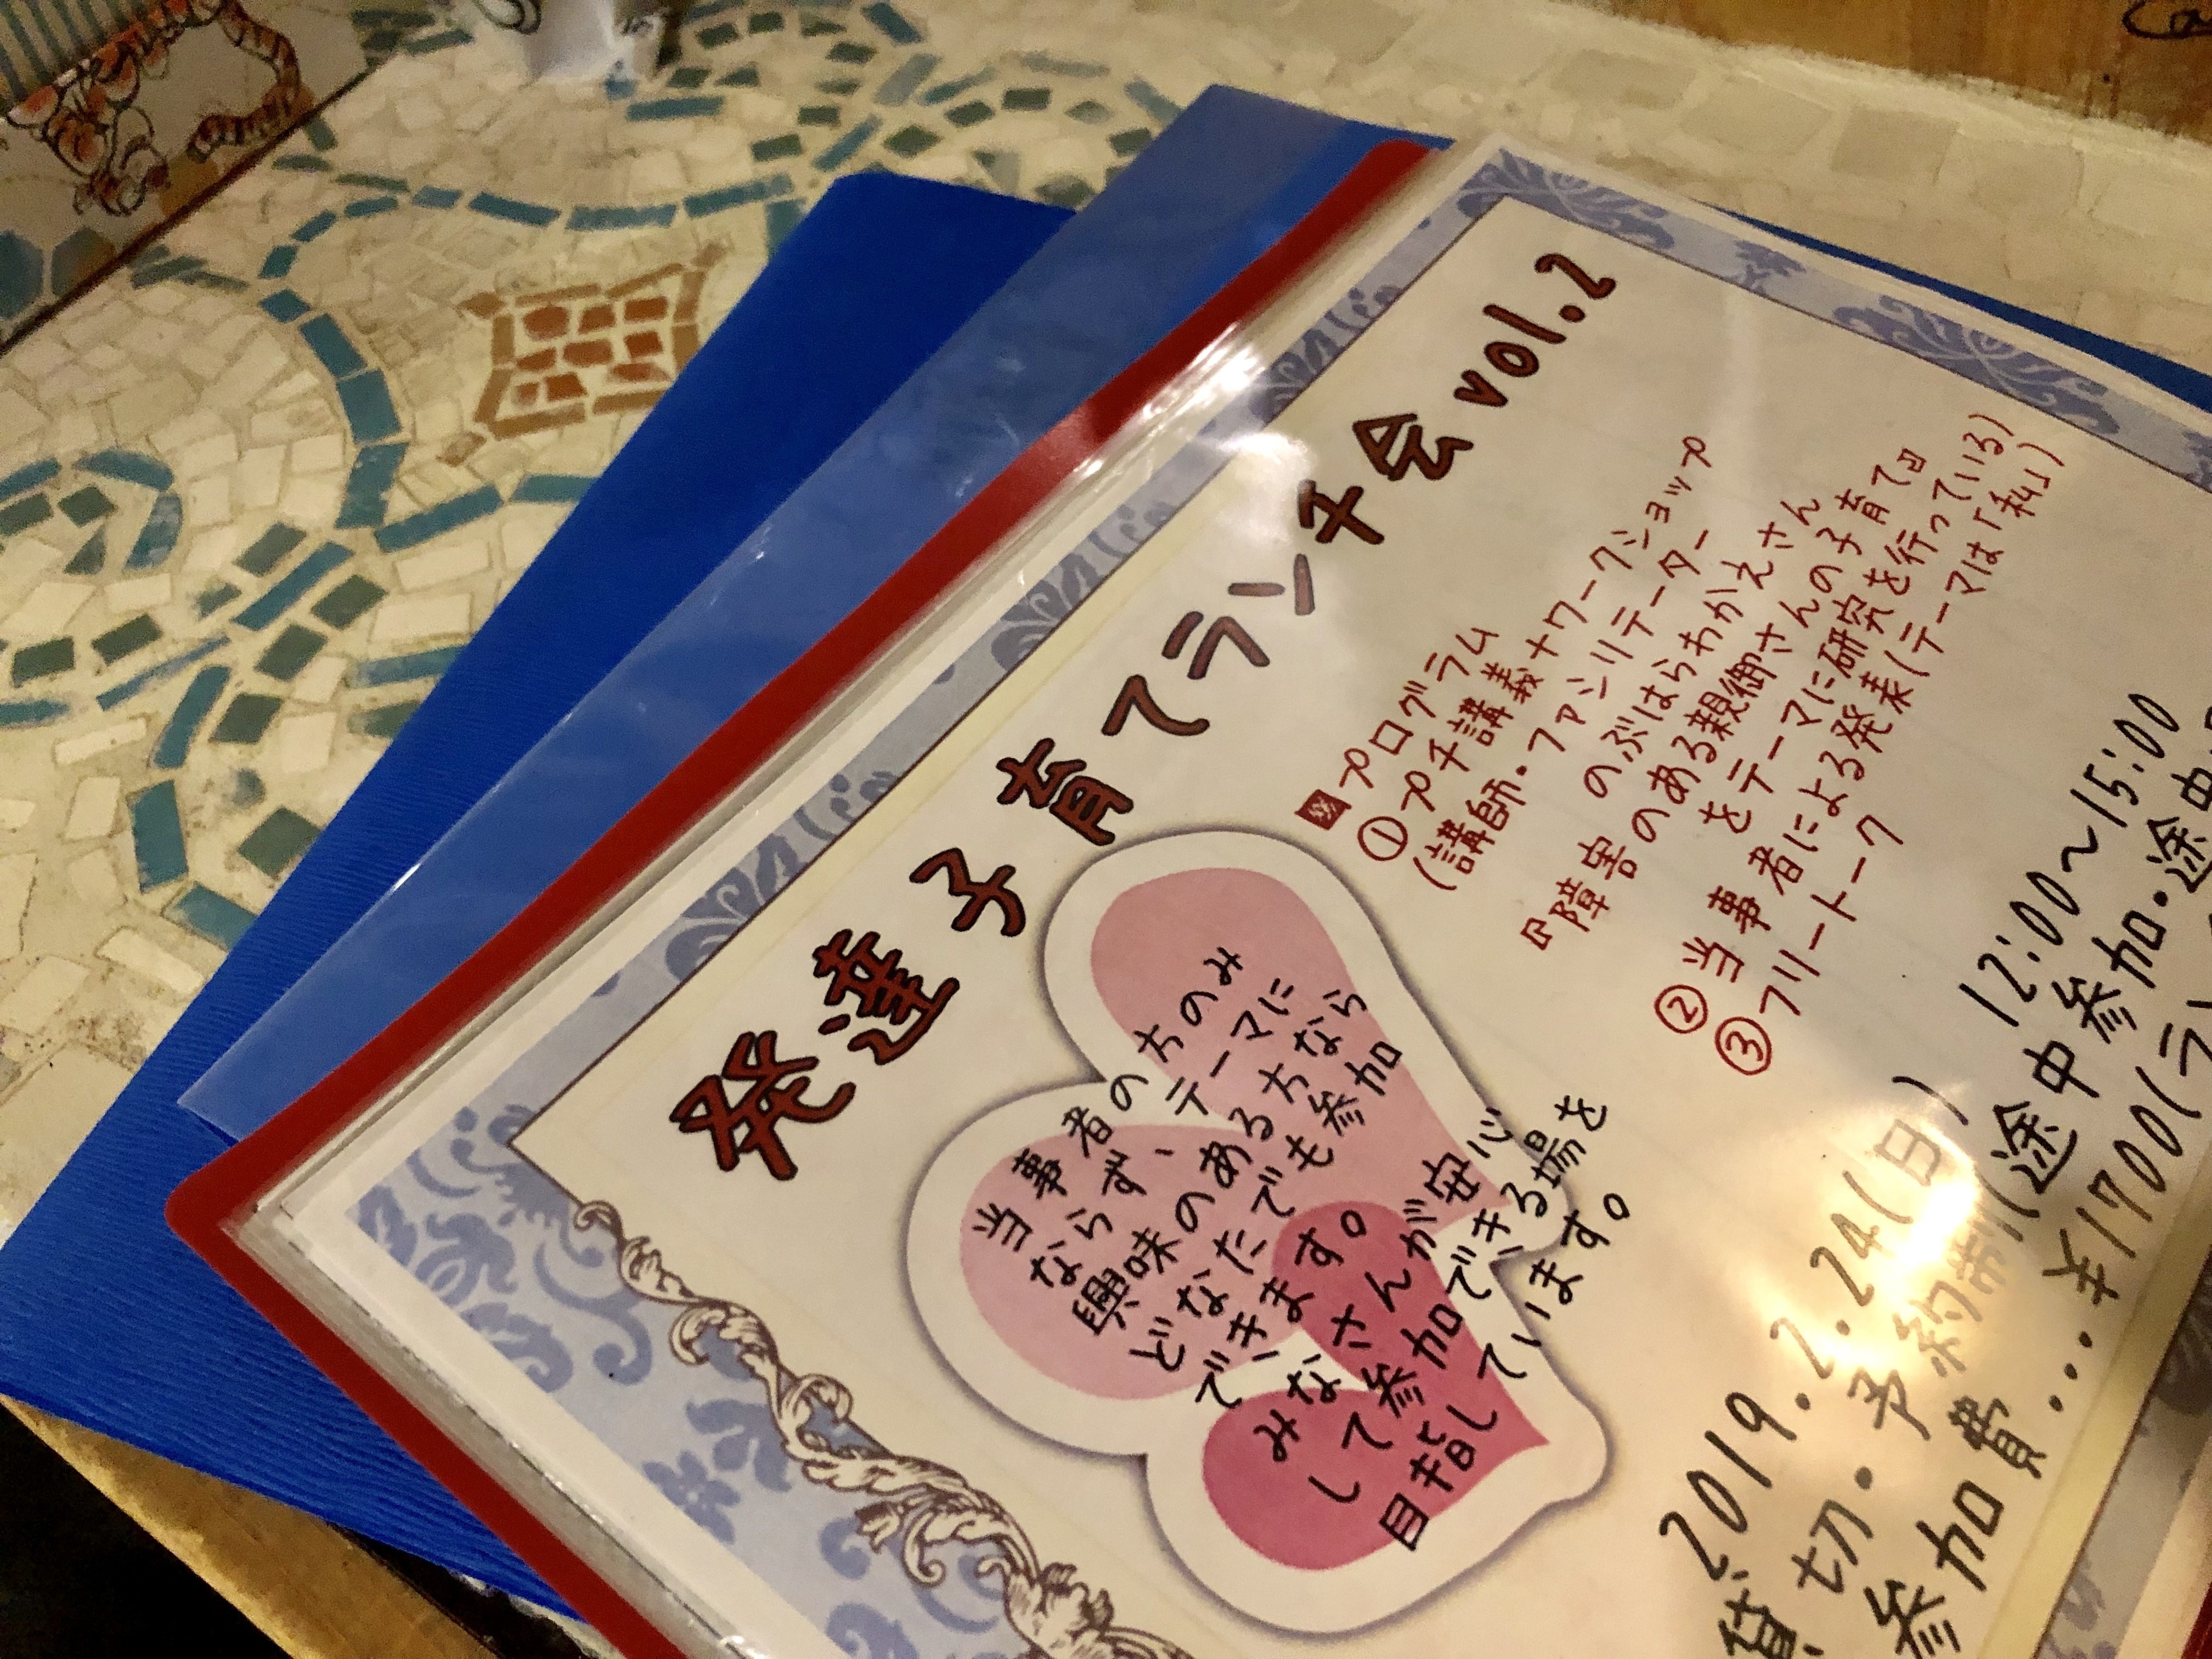 発達子育てランチ会 vol.2
プログラム
① プチ講義+ワークショップ
(講師・ファシリテーター
のぶはらわかえさん
『障害のある親御さんの子育て』
をテーマに研究を行っている)
② 当事者による発表(テーマは「私」)
③ フリートーク
当事者の方のみ
ならず、テーマに
興味のある方なら
どなたでも参加
できます。
みなさんが安心
して参加できる場を
目指しています。
2019.2.24(日) 12:00~15:00
貸切・予約制(途中参加・途中
参加費...¥1700(ラン